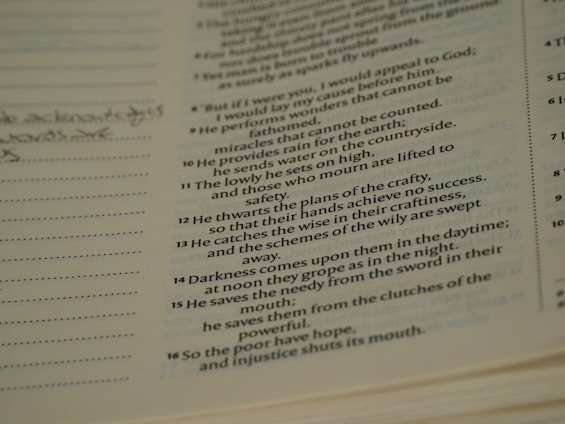 to acknowledge
words are
taking it even from among
and the thirsty pant after
For hardship does not spring from the
nor does trouble sprout from the ground.
7 Yet man is born to trouble
as surely as sparks fly upwards.
8 'But if I were you, I would appeal to God;
I would lay my cause before him.
9 He performs wonders that cannot be
fathomed,
miracles that cannot be counted.
10 He provides rain for the earth;
he sends water on the countryside.
11 The lowly he sets on high,
and those who mourn are lifted to
safety.
12 He thwarts the plans of the crafty,
so that their hands achieve no success.
13 He catches the wise in their craftiness,
and the schemes of the wily are swept
away.
14 Darkness comes upon them in the daytime;
at noon they grope as in the night.
15 He saves the needy from the sword in their
mouth;
he saves them from the clutches of the
powerful.
16 So the poor have hope,
and injustice shuts its mouth.
4 Th
5 D
6 Is
7 I
8
9
10